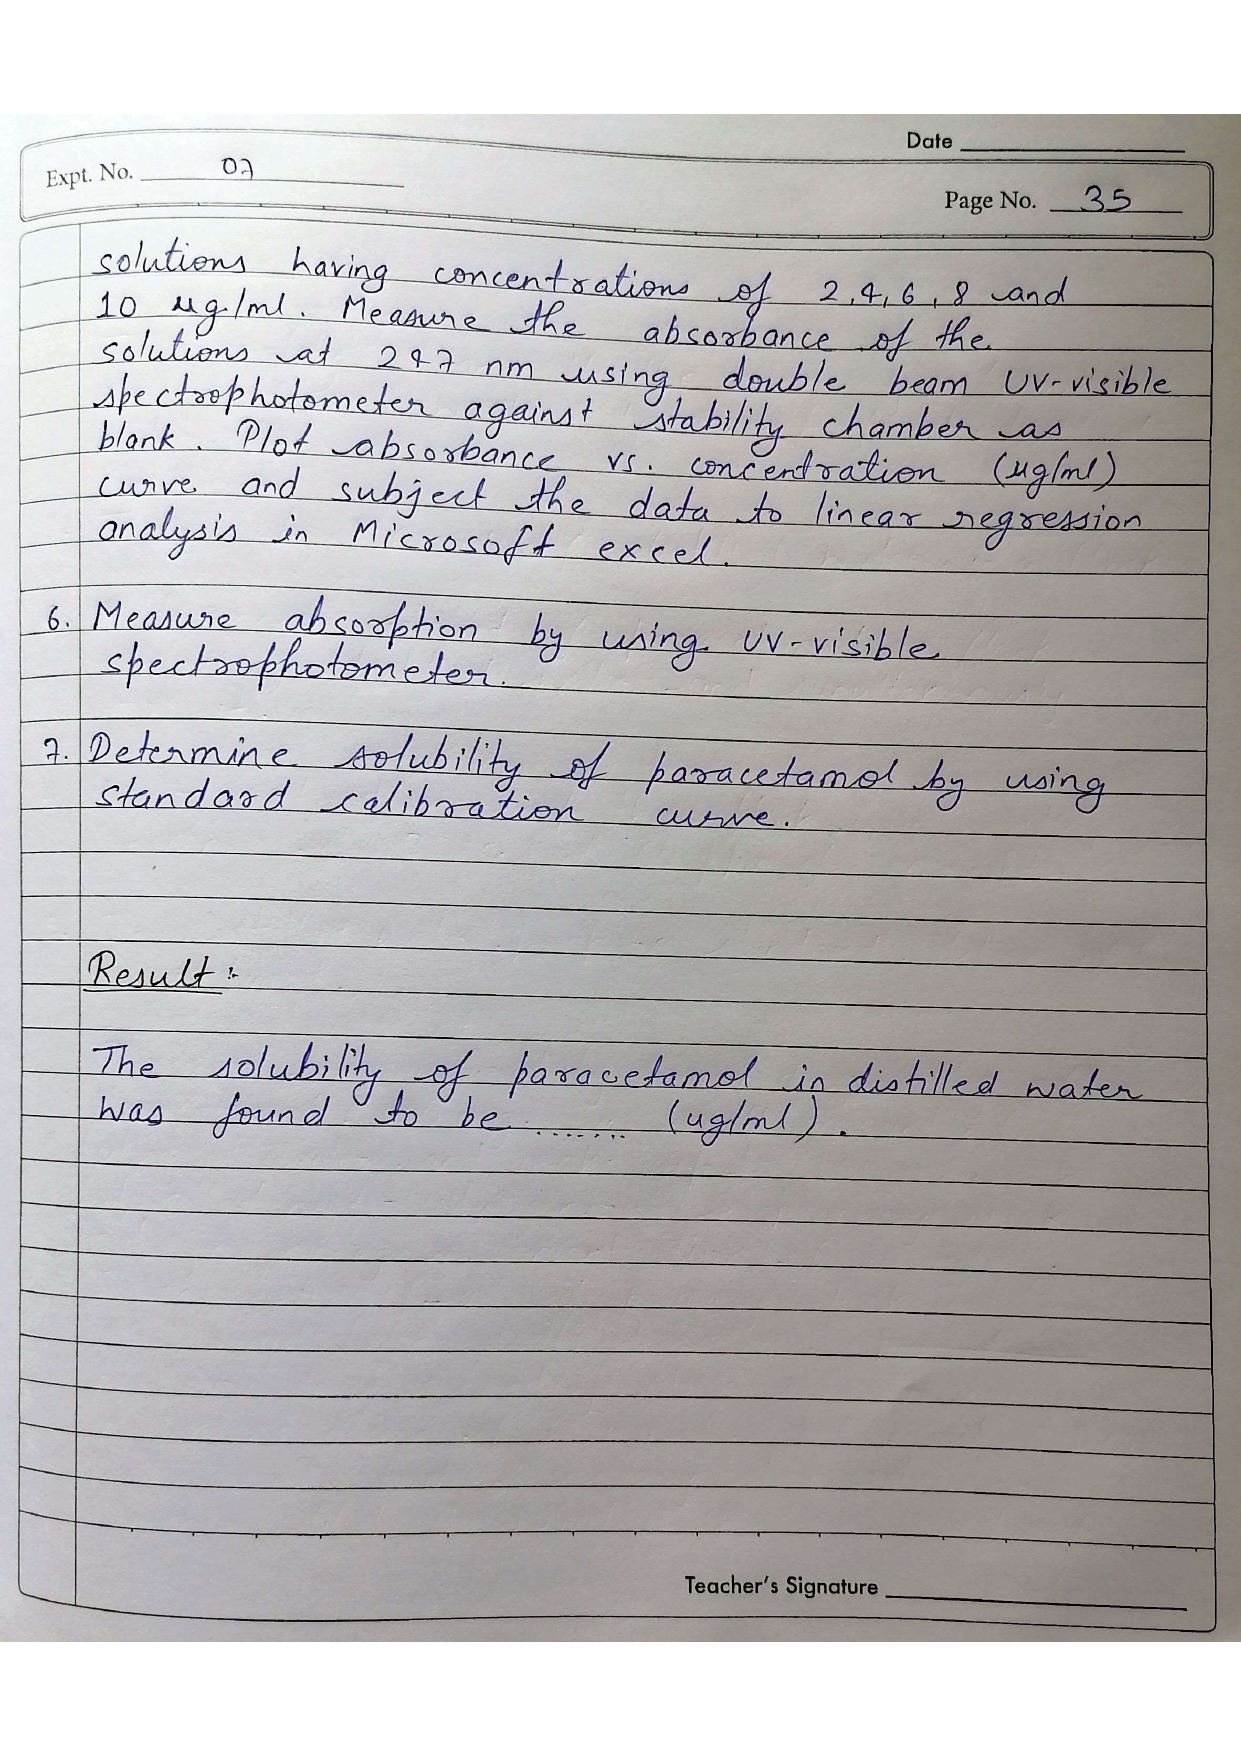 Date
Expt. No. 07
Page No. 35
solutions having concentrations of 2,4,6,8 and
10 ug/ml. Measure the absorbance of the
solutions at 247 nm using double beam UV-visible
spectrophotometer against stability chamber as
blank. Plot absorbance vs. concentration (ug/ml)
curve and subject the data to linear regression
analysis in Microsoft excel.
6. Measure absorption by using UV-visible
spectrophotometer.
7. Determine solubility of paracetamol by using
standard calibration curve.
Result :-
The solubility of paracetamol in distilled water
was found to be ....... (ug/ml).
Teacher's Signature